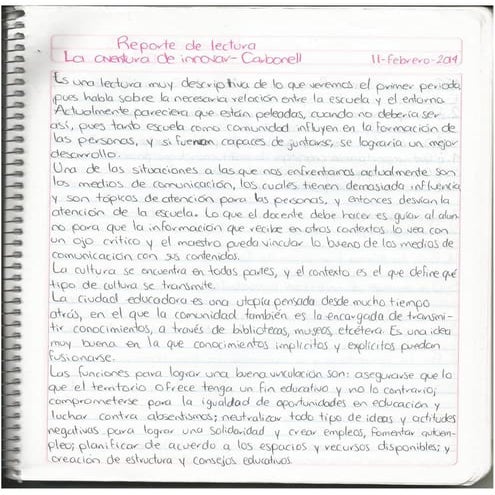 Reporte de lectura
La aventura de innovar - Carbonell 11-febrero-2014
Es una lectura muy descriptiva de lo que veremos el primer periodo,
pues habla sobre la necesaria relación entre la escuela y el entorno.
Actualmente pareciera que están peleadas, cuando no debería ser
así, pues tanto escuela como comunidad influyen en la formación de
las personas, y si fueran capaces de juntarse, se lograría un mejor
desarrollo.
Una de las situaciones a las que nos enfrentamos actualmente son
los medios de comunicación, los cuales tienen demasiada influencia
y son tópicos de atención para las personas, y entonces desvían la
atención de la escuela. Lo que el docente debe hacer es guiar al alum-
no para que la información que recibe en otros contextos lo vea con
un ojo crítico y el maestro pueda vincular lo bueno de los medios de
comunicación con sus contenidos.
La cultura se encuentra en todas partes, y el contexto es el que define qué
tipo de cultura se transmite.
La ciudad educadora es una utopía pensada desde mucho tiempo
atrás, en el que la comunidad también es la encargada de transmi-
tir conocimientos, a través de bibliotecas, museos, etcétera. Es una idea
muy buena en la que conocimientos implícitos y explícitos puedan
fusionarse.
Las funciones para lograr una buena vinculación son: asegurarse que lo
que el territorio ofrece tenga un fin educativo y no lo contrario;
comprometerse para la igualdad de oportunidades en educación y
luchar contra absentismos; neutralizar todo tipo de ideas y actitudes
negativas para lograr una solidaridad y crear empleos, fomentar autoem-
pleo; planificar de acuerdo a los espacios y recursos disponibles; y
creación de estructura y consejos educativos.